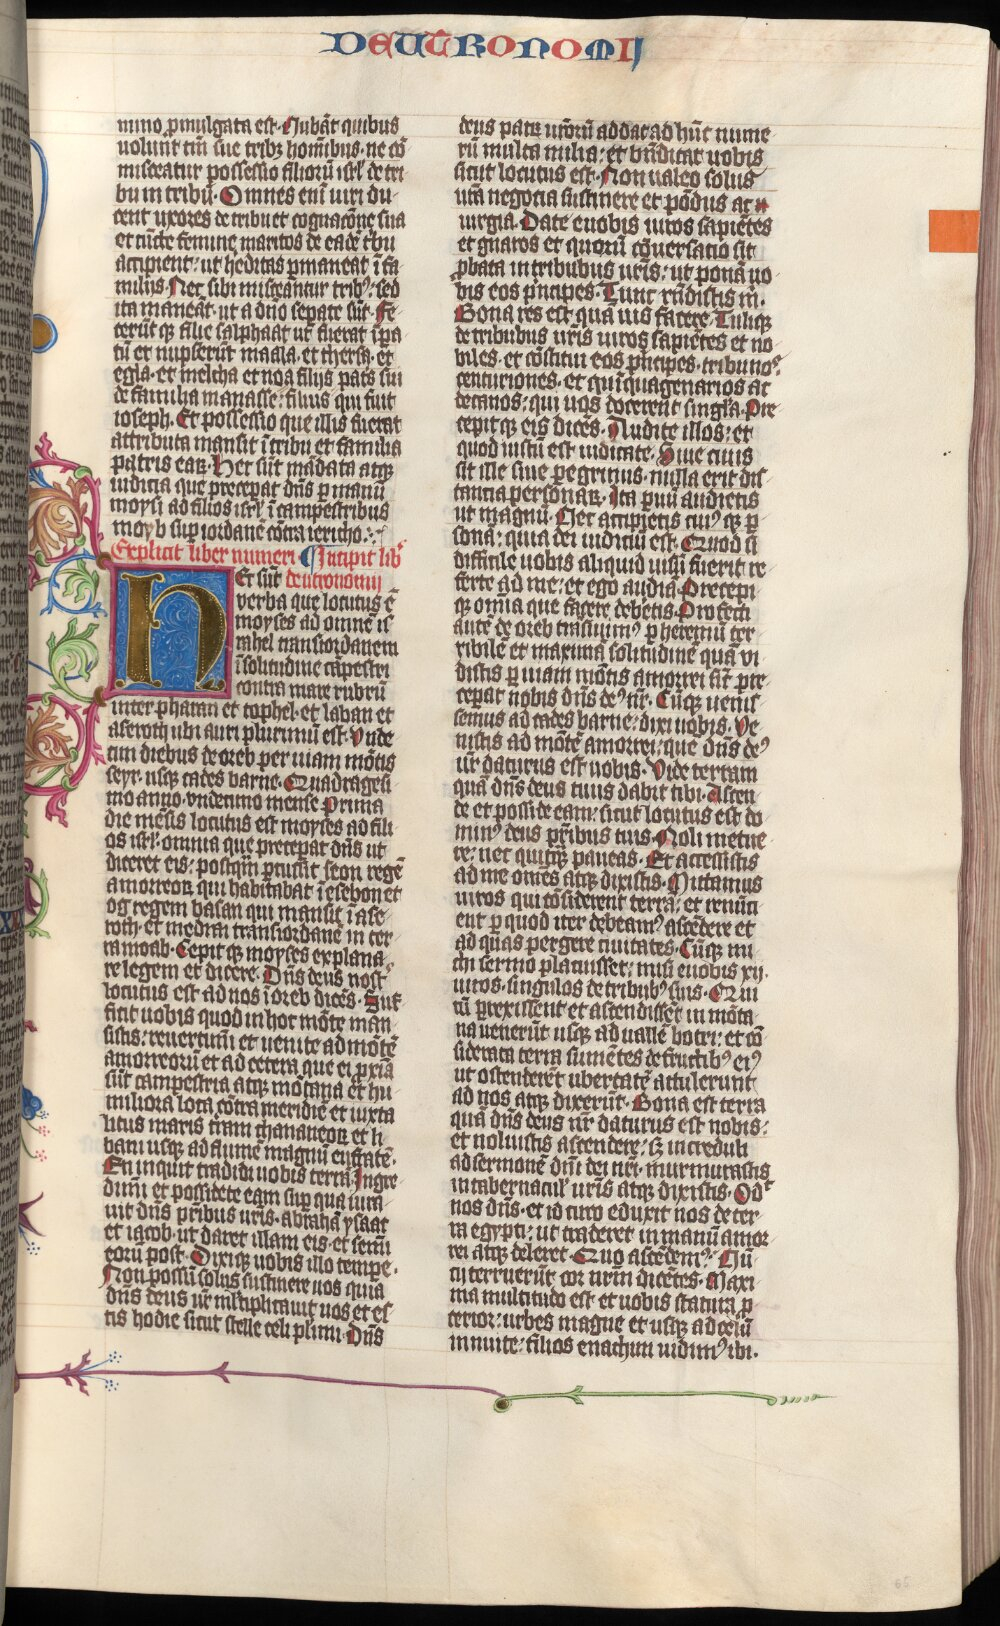 DEUTRONOMIJ
mino ꝓmulgata est. Nubāt quibus
uolunt tm̄ sue tribꝫ hominibus. ne cō
misceatur possessio filioꝝ isrl̓ de tri
bu in tribū. Omnes eni uiri du
cent uxores de tribu et cognacōne sua
et cūcte femine maritos de eadē tbu
accipient: ut heditas ꝑmaneat ī fa
milijs. Nec sibi misceantur tribꝰ: sed
ita maneāt. ut a dn̄o seꝑate sūt. Fe
cerūt qꝫ filie salphaat ut fuerat īpa
tū et nupserūt maala. et thersa. et
egla. et melcha et noa filijs pat̓s sui
de familia manasse: filius qui fuit
ioseph. Et possessio que illis fuerat
attributa mansit ī tribu et familia
patris eaꝝ. Hec sūt mādata atqꝫ
iudicia que precepat dn̄s ꝑ manū
moysi ad filios isrl̓ ī campestribus
moab suꝑ iordanē cōtra iericho.
Explicit liber numeri. Incipit lib̓
deutronomij
Hec sūt
verba que locutus ē
moyses ad omnē is
rahel transiordanem
ī solitudine cāpestri
contra mare rubrū
inter pharan et tophel. et laban et
aseroth ubi auri plurimū est. Vnde
cim diebus de oreb per uiam mōtis
seyr. usqꝫ cades barne. Quadragesi
mo anno. vndecimo mense Prima
die mēsis locutus est moyses ad fili
os isrl̓. omnia que precepat dn̄s ut
diceret eis: postqm̄ ꝑcussit seon regē
amorreoꝝ qui habitabat ī esebon et
og regem basan qui mansit ī ase
roth. et medrai transiordanē in ter
ra moab. Cepit qꝫ moyses explana
re legem et dicere. Dn̄s deus nost̓
locutus est ad nos ī oreb dicēs. Suf
ficit uobis quod in hoc mōte man
sistis: reuertimī et uenite ad mōtē
amorreorū et ad cetera que ei ꝓxīa
sūt campestria atqꝫ mōtana et hu
miliora loca cōtra meridiē et iuxta
litus maris tram chananeoꝝ et li
bani usqꝫ ad flumē magnū eufratē.
En inquit tradidi uobis terrā. Ingre
dimī et possidete eam suꝑ qua iura
uit dn̄s pr̄ibus ur̄is. abrahā ysaac
et iacob. ut daret illam eis. et semī
eorū post. Dixiqꝫ uobis illo tempe.
Non possū solus sustinere uos quia
dn̄s deus ur̄ mltiplicauit uos et es
tis hodie sicut stelle celi plurimi. Dn̄s
deus patꝝ ur̄orū addat ad hūc nume
rū multa milia: et bn̄dicat uobis
sicut locutus est. Non ualeo solus
ur̄a negocia sustinere et pōdus ac
iurgia. Date euobis uiros sapiētes
et gnaros et quorū cōuersacio sit
ꝓbata in tribubus ur̄is: ut ponā uo
bis eos pn̓cipes. Tunc rn̄distis m̄.
Bona res est quā uis facere. Tuliqꝫ
de tribubus ur̄is uiros sapiētes et no
biles. et cōstitui eos pn̓cipes. tribunoˢ.
centuriones. et quīquagenarios ac
decanos: qui uos docerent singla. Pre
cepit qꝫ eis dicēs. Audite illos: et
quod iustū est iudicate. Siue ciuis
sit ille siue ꝑegrinus. nulla erit dis
tancia personaꝝ. Ita ꝑuū audietis
ut magnū. Nec accipietis cuiꝰ qꝫ ꝑ
sonā: quia dei iudiciū est. Quod si
difficile uobis aliquid uisū fuerit re
ferte ad me: et ego audiā. Precepi
qꝫ omia que facere debetis. Profecti
autē de oreb trāsiuimꝰ ꝑ heremū ter
ribilē et maximā solitudinē quā vi
distis ꝑ uiam mōtis amorrei sic̄ pre
cepat nobis dn̄s deꝰ nr̄. Cūqꝫ venis
semus ad cades barne: dixi uobis. Ve
nistis ad mōtē amorrei: que dn̄s deꝰ
ur̄ daturus est uobis. Vide terram
quā dn̄s deus tuus dabit tibi. Ascen
de et posside eam: sicut locutus est do
minꝰ deus pr̄ibus tuis. Noli metue
re: nec quicqꝫ paueas. Et accessistis
ad me om̄es atqꝫ dixistis. Mittamus
uiros qui cōsiderent terrā: et renūci
ent ꝑ quod iter debeamꝰ ascēdere et
ad quas pergere ciuitates. Cūqꝫ mi
chi sermo placuisset: misi euobis xij
uiros. singulos de tribubꝰ suis. Qui
cū ꝑrexissent et ascendissēt in mōta
na venerūt usqꝫ ad uallē botri: et cō
siderata terra sumētes de fructibꝰ eiꝰ
ut ostenderēt ubertatē attulerunt
ad nos atqꝫ dixerūt. Bona est terra
quā dn̄s deus nr̄ daturus est nobis:
et noluistis ascendere: sꝫ increduli
ad sermonē dn̄i dei nr̄i. murmurastis
in tabernacul̓ ur̄is atqꝫ dixistis. Odᵗ
nos dn̄s. et idcirco eduxit nos de ter
ra egypti: ut traderet in manū amor
rei atqꝫ deleret. Quo ascēdemꝰ? Nū
cij terruerūt cor nr̄m dicētes. Maxi
ma multitudo est et uobis statura ꝓ
cerior: urbes magne et usqꝫ ad celū
munite: filios enachim uidimꝰ ibi.
65